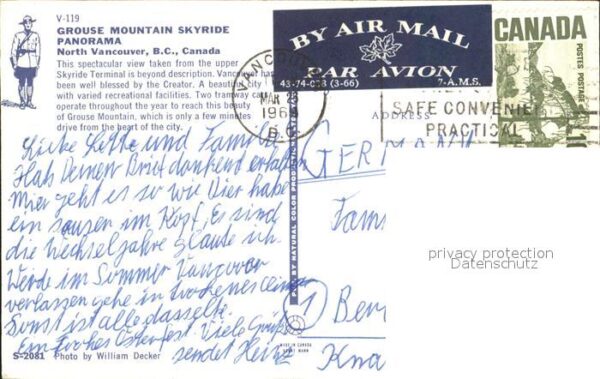 V-119
GROUSE MOUNTAIN SKYRIDE
PANORAMA
North Vancouver, B.C., Canada
This spectacular view taken from the upper
Skyride Terminal is beyond description. Vancouver has
been well blessed by the Creator. A beautiful city
with varied recreational facilities. Two tramway cars
operate throughout the year to reach this beauty
of Grouse Mountain, which is only a few minutes
drive from the heart of the city.
BY AIR MAIL
PAR AVION
43-74-038 (3-66) 7-A.M.S.
CANADA
POSTES POSTAGE
10
VANCOUVER
MAR
196
B.C.
SAFE CONVENIENT
PRACTICAL
ADDRESS
Liebe Lotte und Familie
Hab Deinen Brief dankend erhalten
Mir geht es so wie Dier habe
ein sausen im Kopf, Es sind
die Wechseljahre glaube ich
Werde im Sommer Vancouver
verlassen gehe in
Sonst ist alle dasselbe.
Ein frohes Osterfest. Viele Grüße
sendet Heinz
GERMANY
Fam
1 Ber
Kna
privacy protection
Datenschutz
MADE IN CANADA
S-2081 Photo by William Decker